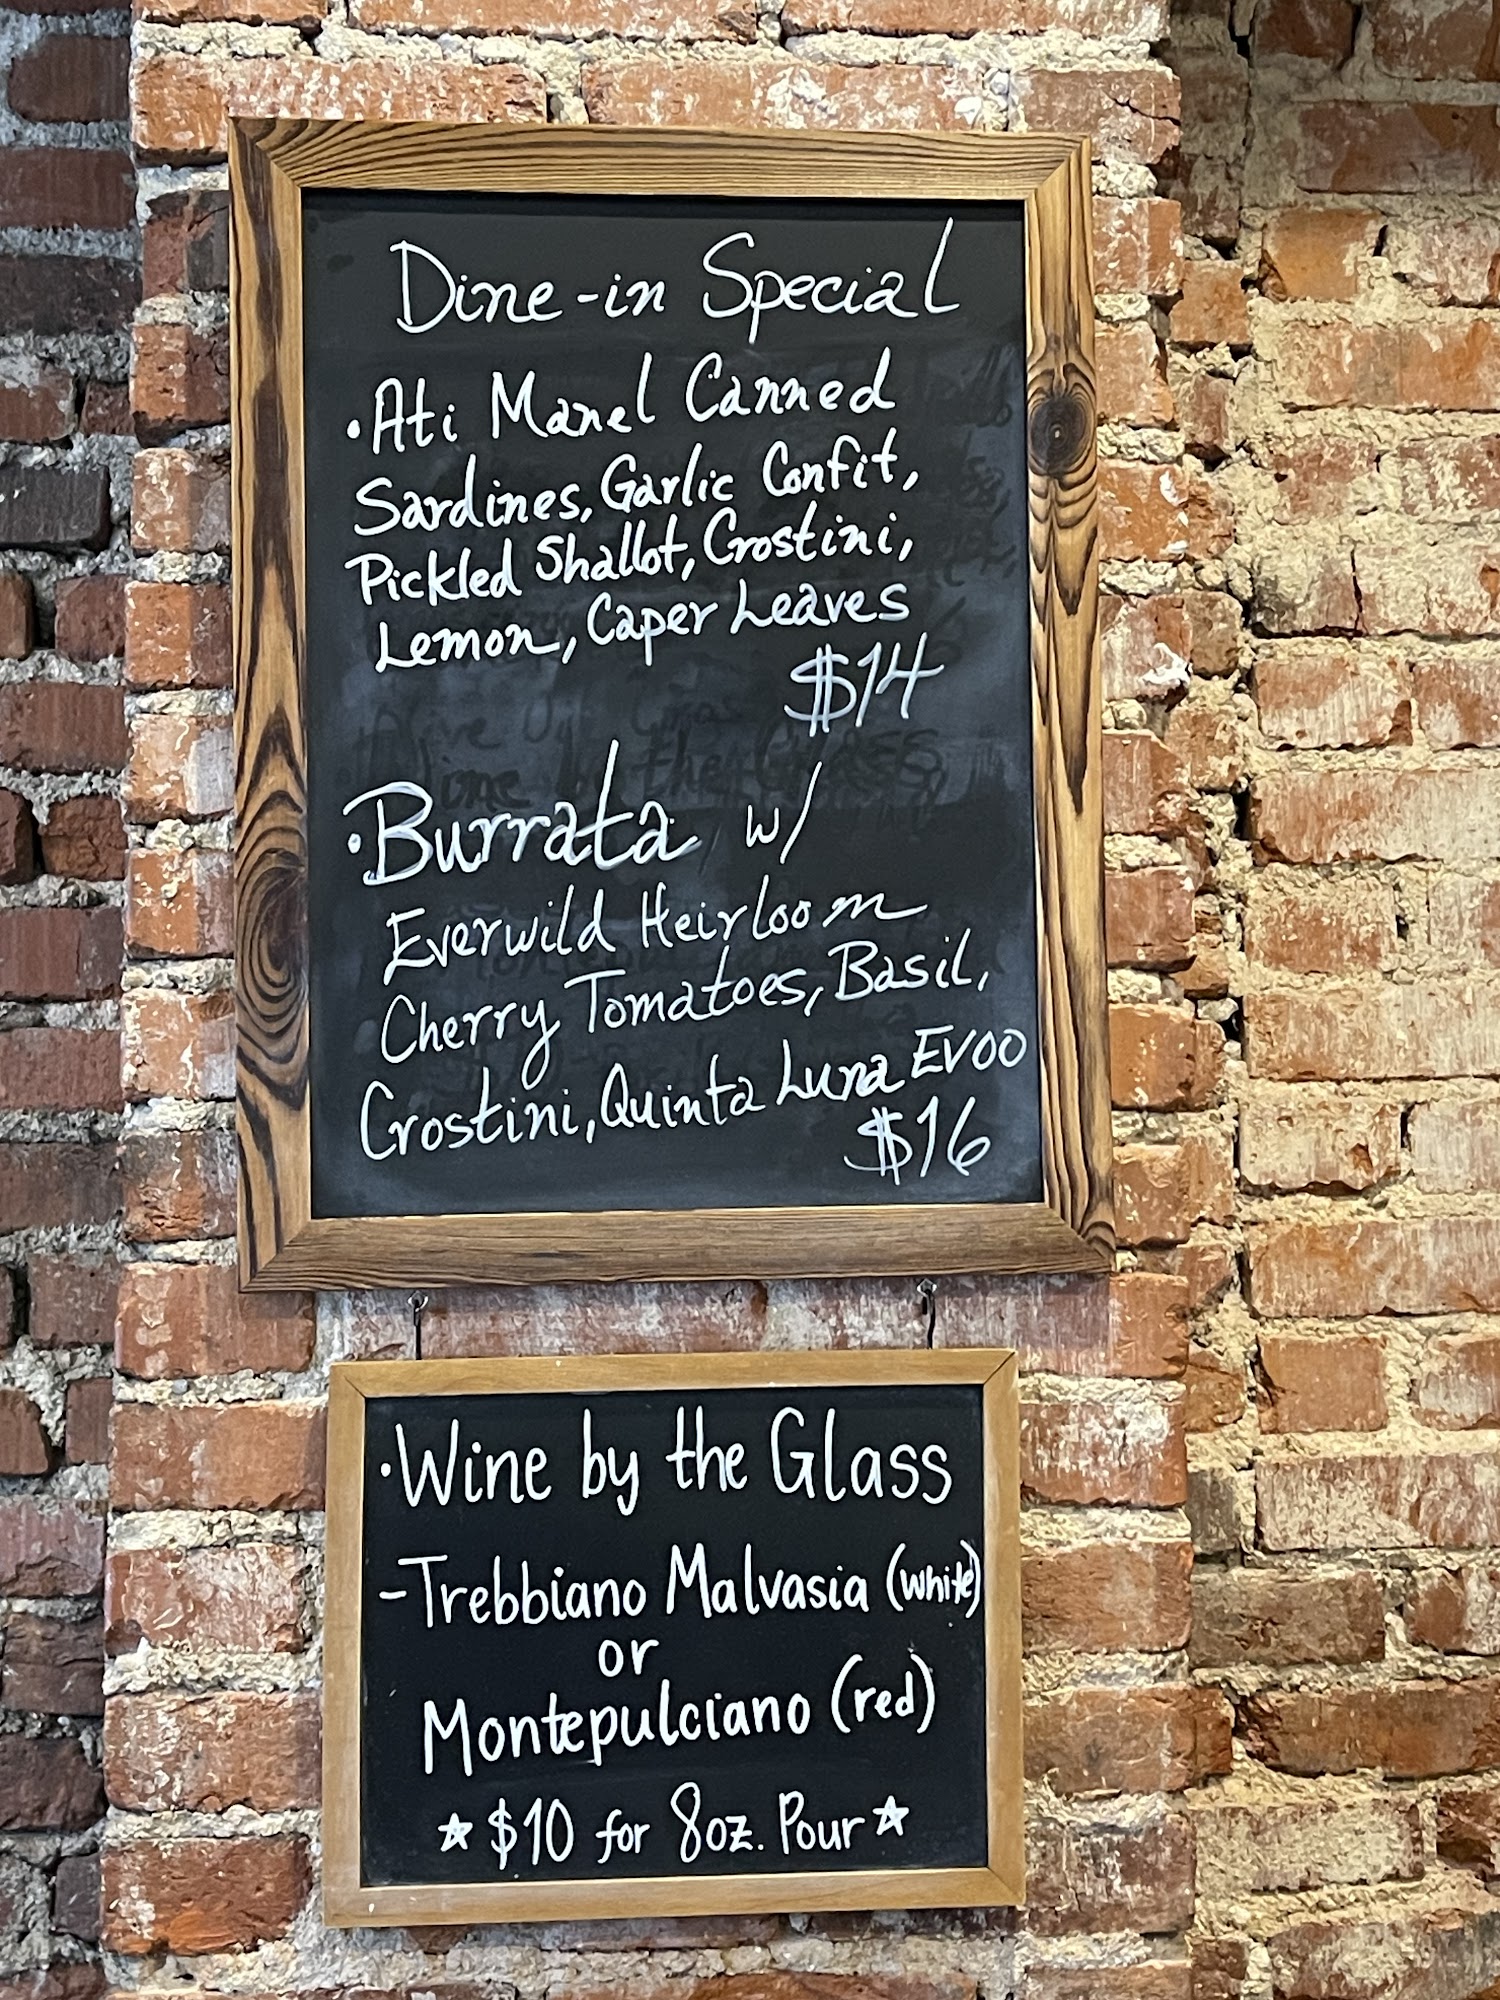 Dine-in Special
• Ati Manel Canned
Sardines, Garlic Confit,
Pickled Shallot, Crostini,
Lemon, Caper Leaves
$14
• Burrata w/
Everwild Heirloom
Cherry Tomatoes, Basil,
Crostini, Quinta Luna EVOO
$16
• Wine by the Glass
- Trebbiano Malvasia (white)
or
Montepulciano (red)
☆ $10 for 8oz. Pour ☆